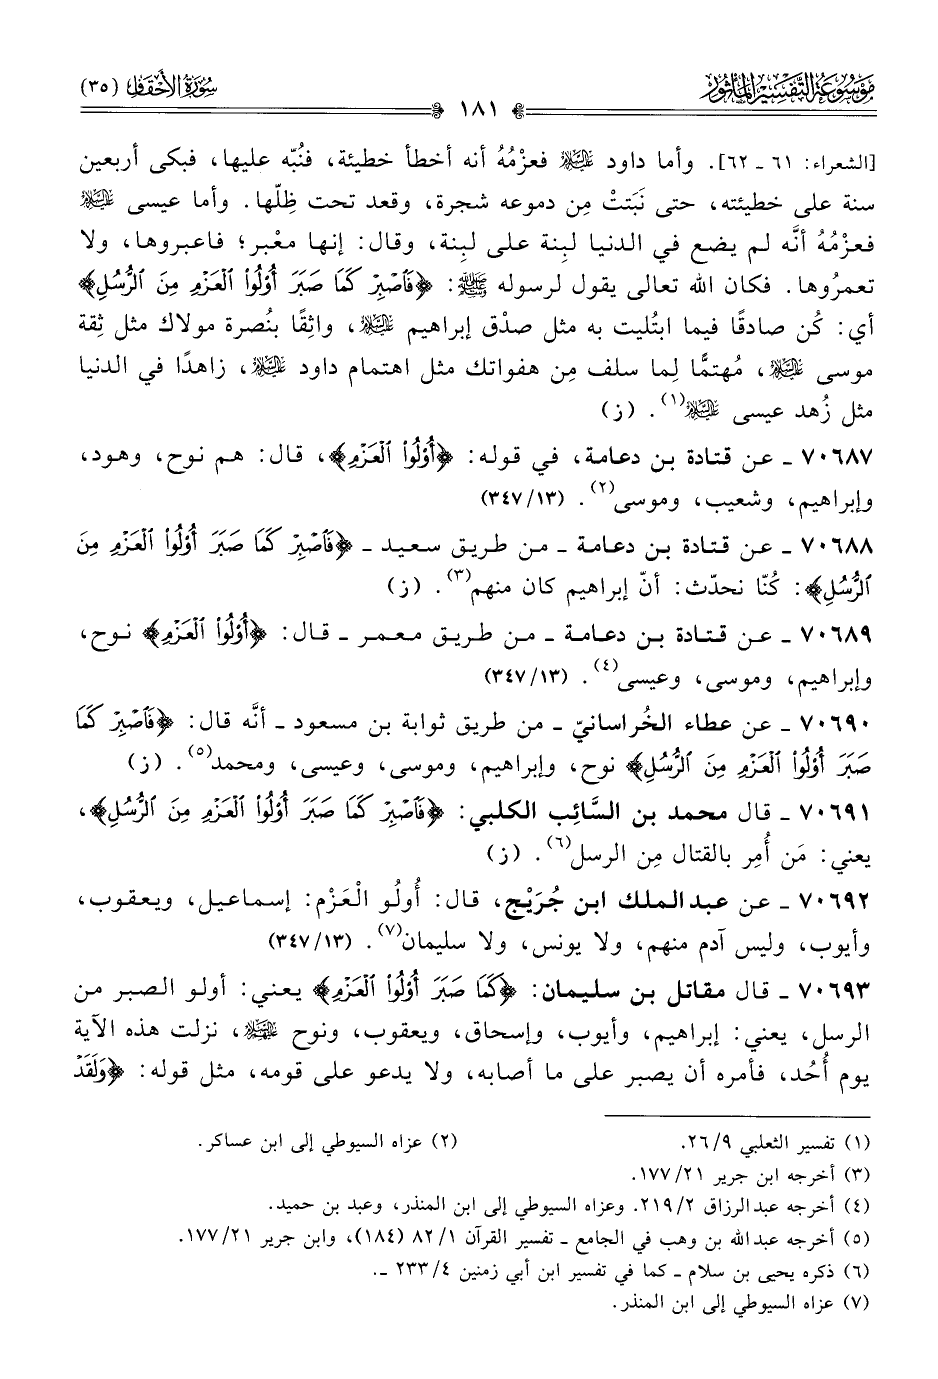 مَوْسُوعَةُ التَّفْسِيرُ المَأْثُور
سُورَةُ الأَحْقَافِ (٣٥)
١٨١
[الشعراء: ٦١ ـ ٦٢]. وأما داود عليه السلام فعزْمُهُ أنه أخطأ خطيئة، فنُبّه عليها، فبكى أربعين
سنة على خطيئته، حتى نَبَتتْ مِن دموعه شجرة، وقعد تحت ظِلّها. وأما عيسى عليه السلام
فعزْمُهُ أنَّه لم يضع في الدنيا لبِنة على لبِنة، وقال: إنها معْبر؛ فاعبروها، ولا
تعمرُوها. فكان الله تعالى يقول لرسوله ﷺ: ﴿فَٱصْبِرْ كَمَا صَبَرَ أُوْلُواْ ٱلْعَزْمِ مِنَ ٱلرُّسُلِ﴾
أي: كُن صادقًا فيما ابتُليت به مثل صدْق إبراهيم عليه السلام، واثِقًا بنُصرة مولاك مثل ثِقة
موسى عليه السلام، مُهتمًّا لِما سلف مِن هفواتك مثل اهتمام داود عليه السلام، زاهدًا في الدنيا
مثل زُهد عيسى عليه السلام(١). (ز)
٧٠٦٨٧ ـ عن قتادة بن دعامة، في قوله: ﴿أُوْلُواْ ٱلْعَزْمِ﴾، قال: هم نوح، وهود،
وإبراهيم، وشعيب، وموسى(٢). (٣٤٧/١٣)
٧٠٦٨٨ ـ عن قتادة بن دعامة ـ من طريق سعيد ـ ﴿فَٱصْبِرْ كَمَا صَبَرَ أُوْلُواْ ٱلْعَزْمِ مِنَ
ٱلرُّسُلِ﴾: كُنّا نحدّث: أنّ إبراهيم كان منهم(٣). (ز)
٧٠٦٨٩ ـ عن قتادة بن دعامة ـ من طريق معمر ـ قال: ﴿أُوْلُواْ ٱلْعَزْمِ﴾ نوح،
وإبراهيم، وموسى، وعيسى(٤). (٣٤٧/١٣)
٧٠٦٩٠ ـ عن عطاء الخُراسانيّ ـ من طريق ثوابة بن مسعود ـ أنَّه قال: ﴿فَٱصْبِرْ كَمَا
صَبَرَ أُوْلُواْ ٱلْعَزْمِ مِنَ ٱلرُّسُلِ﴾ نوح، وإبراهيم، وموسى، وعيسى، ومحمد(٥). (ز)
٧٠٦٩١ ـ قال محمد بن السَّائِب الكلبي: ﴿فَٱصْبِرْ كَمَا صَبَرَ أُوْلُواْ ٱلْعَزْمِ مِنَ ٱلرُّسُلِ﴾،
يعني: مَن أُمِر بالقتال مِن الرسل(٦). (ز)
٧٠٦٩٢ ـ عن عبدالملك ابن جُرَيْج، قال: أُولُو الْعَزْم: إسماعيل، ويعقوب،
وأيوب، وليس آدم منهم، ولا يونس، ولا سليمان(٧). (٣٤٧/١٣)
٧٠٦٩٣ ـ قال مقاتل بن سليمان: ﴿كَمَا صَبَرَ أُوْلُواْ ٱلْعَزْمِ﴾ يعني: أولو الصبر من
الرسل، يعني: إبراهيم، وأيوب، وإسحاق، ويعقوب، ونوح عليهم السلام، نزلت هذه الآية
يوم أُحُد، فأمره أن يصبر على ما أصابه، ولا يدعو على قومه، مثل قوله: ﴿وَلَقَدْ
(١) تفسير الثعلبي ٢٦/٩.
(٢) عزاه السيوطي إلى ابن عساكر.
(٣) أخرجه ابن جرير ١٧٧/٢١.
(٤) أخرجه عبدالرزاق ٢١٩/٢. وعزاه السيوطي إلى ابن المنذر، وعبد بن حميد.
(٥) أخرجه عبدالله بن وهب في الجامع ـ تفسير القرآن ٨٢/١ (١٨٤)، وابن جرير ١٧٧/٢١.
(٦) ذكره يحيى بن سلام ـ كما في تفسير ابن أبي زمنين ٢٣٣/٤ ـ.
(٧) عزاه السيوطي إلى ابن المنذر.